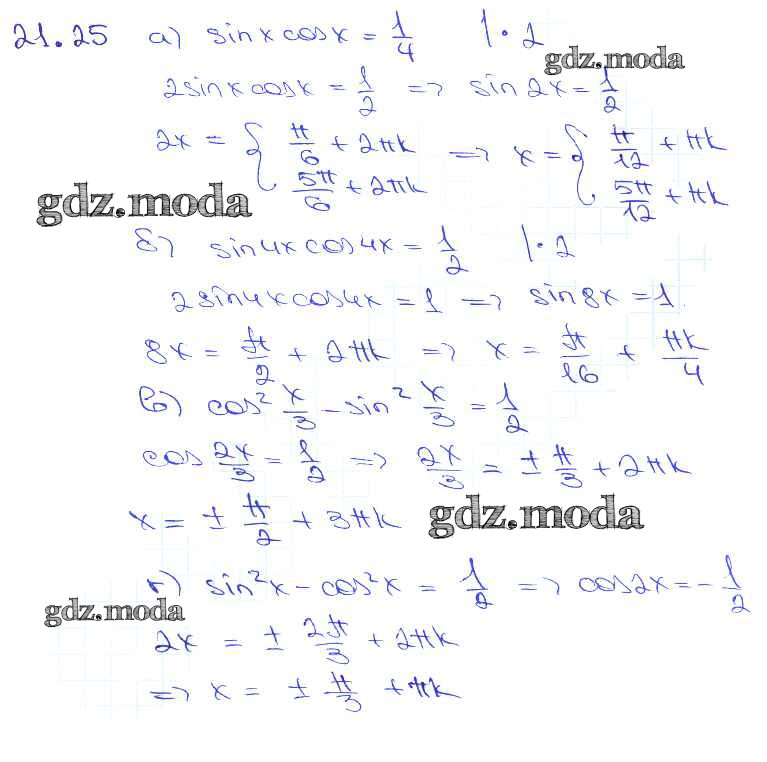 21.25 а) sin x cos x = 1/4 | · 2
gdz.moda
2 sin x cos x = 1/2 => sin 2x = 1/2
2x = { π/6 + 2πk => x = { π/12 + πk
5π/6 + 2πk 5π/12 + πk
gdz.moda
б) sin 4x cos 4x = 1/2 | · 2
2 sin 4x cos 4x = 1 => sin 8x = 1
8x = π/2 + 2πk => x = π/16 + πk/4
в) cos² x/3 – sin² x/3 = 1/2
cos 2x/3 = 1/2 => 2x/3 = ± π/3 + 2πk
x = ± π/2 + 3πk
gdz.moda
г) sin²x – cos²x = 1/2 => cos 2x = – 1/2
gdz.moda
2x = ± 2π/3 + 2πk
=> x = ± π/3 + πk